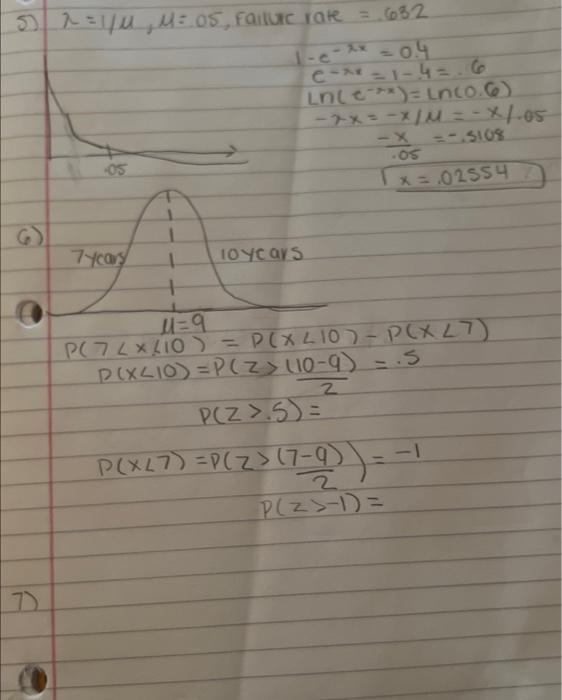 5) λ = 1/μ, μ = .05, Failure rate = .632
1-e^-λx = 0.4
e^-λx = 1-.4 = .6
Ln(e^-λx) = Ln(0.6)
-λx = -x/μ = -x/.05
-x/.05 = -.5108
x = .02554
.05
6)
7years 10years
μ=9
P(7<x<10) = P(x<10) - P(x<7)
P(x<10) = P(z > (10-9)/2 = .5
P(z >.5) =
P(x<7) = P(z > (7-9)/2) = -1
P(z >-1) =
7)